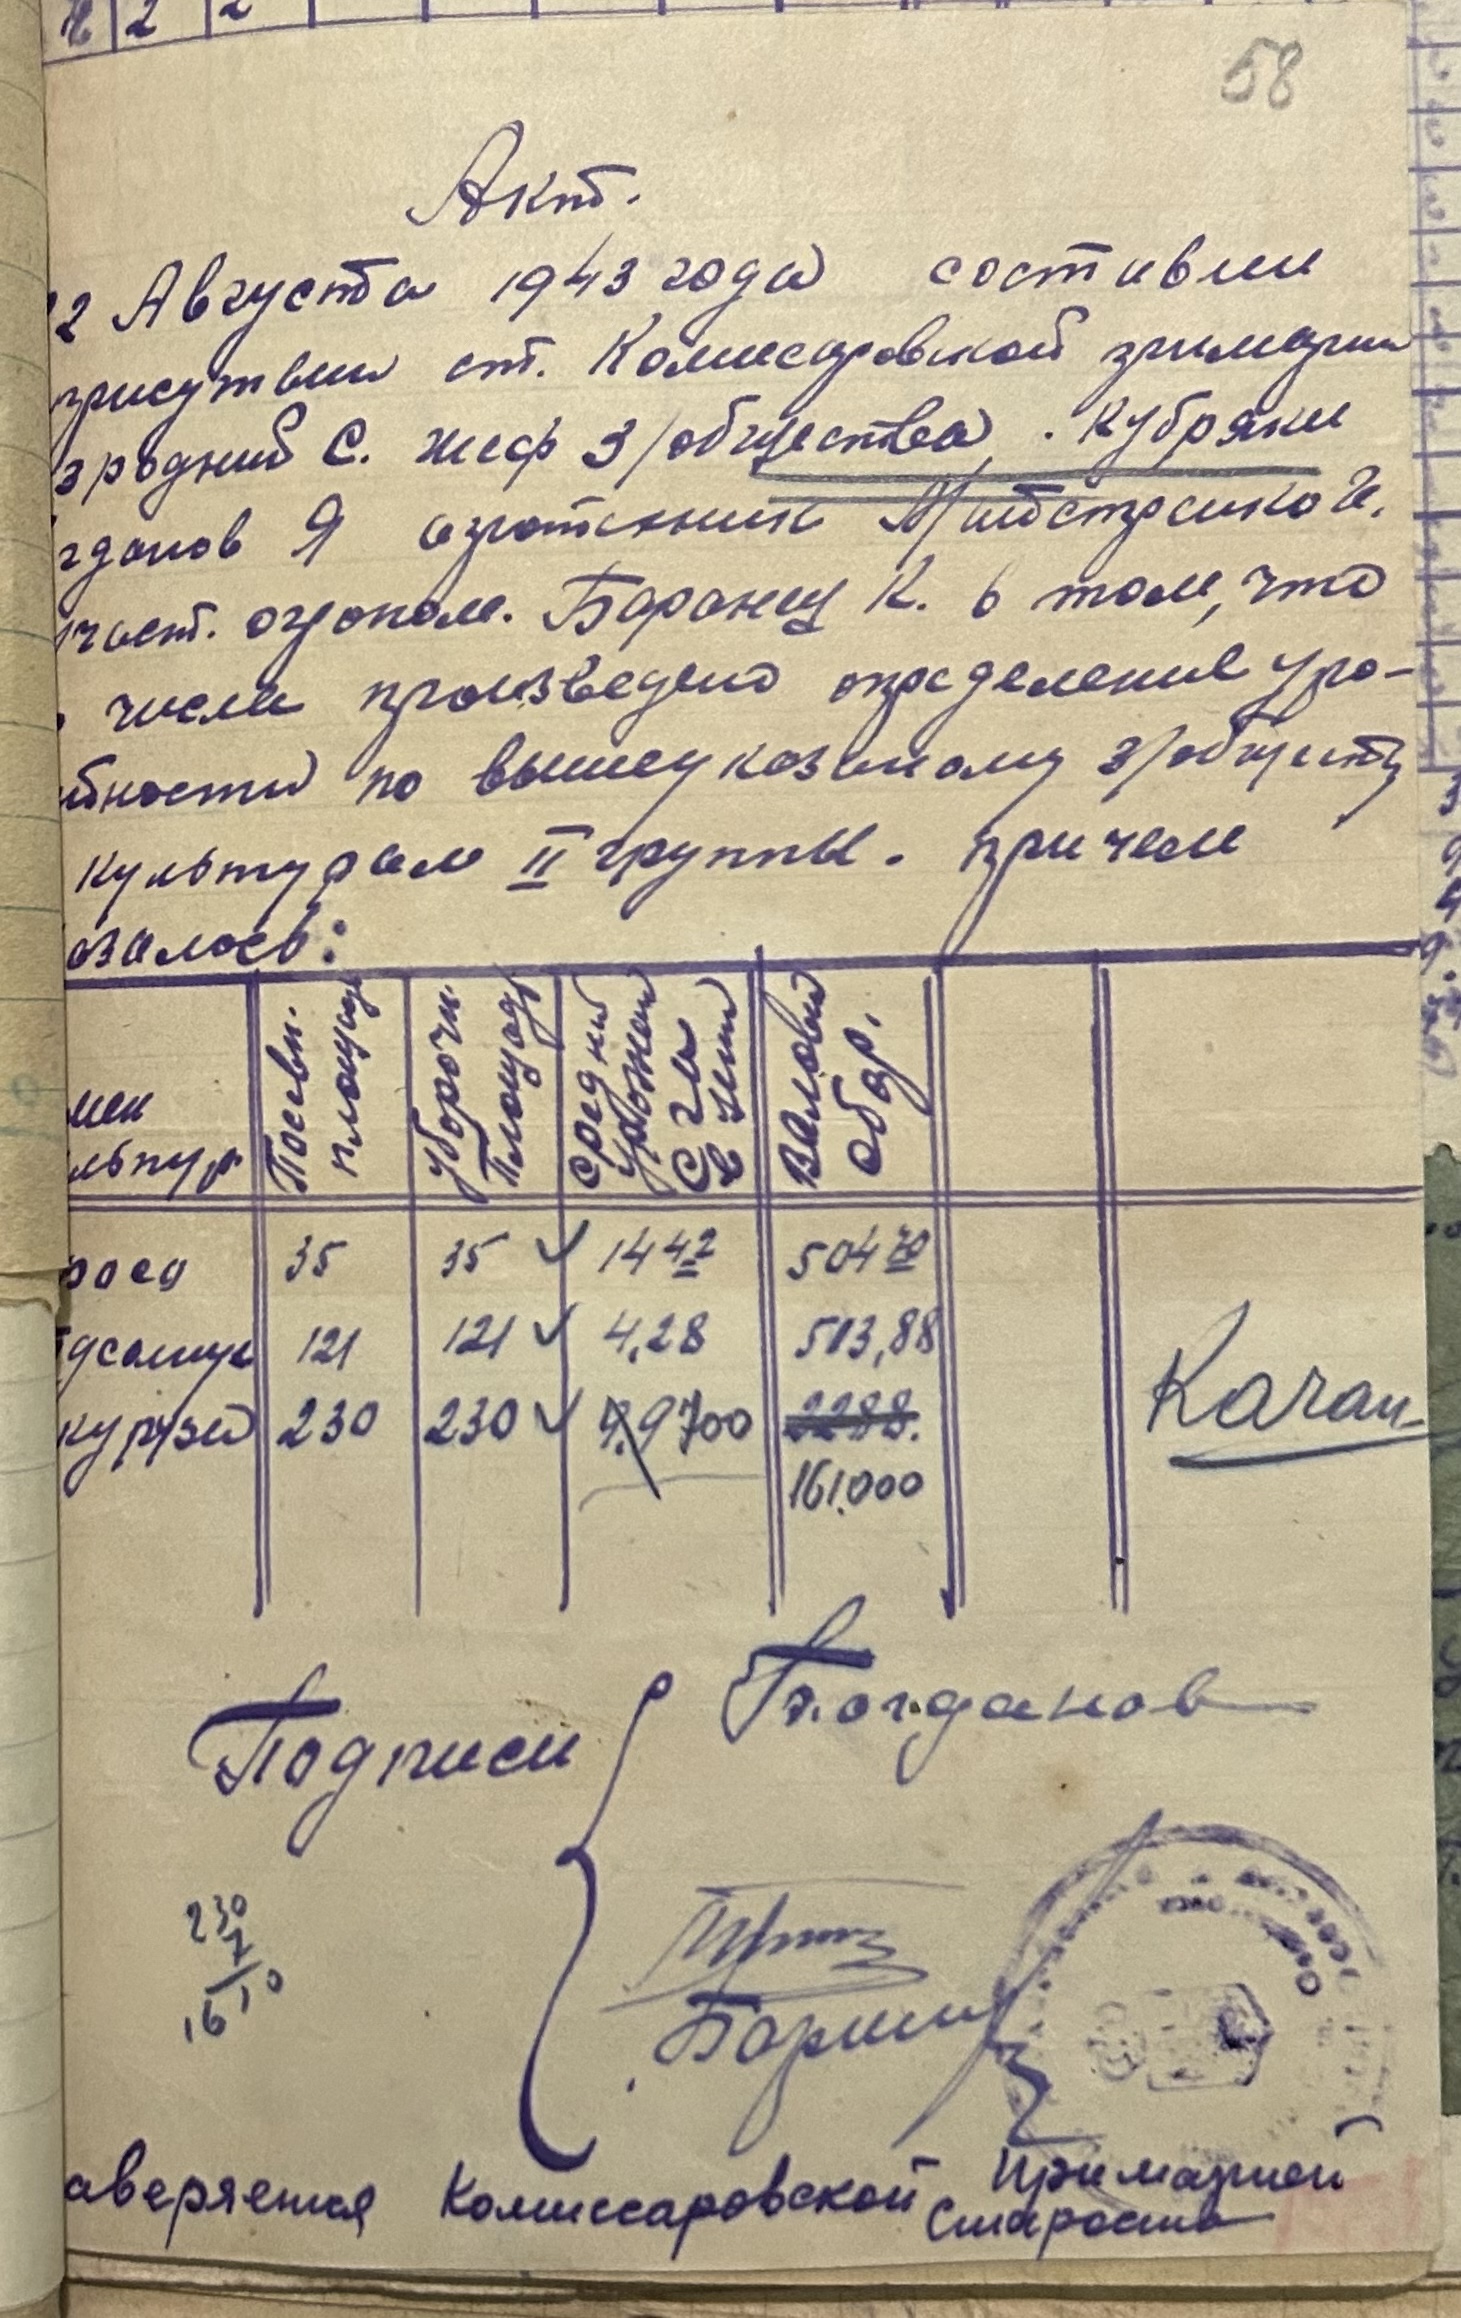 58
Акт.
2 Августа 1943 года составлен
присутвии ст. Комисаровской примарии
зродний С. шеф з/общества. Кубряки
гданов Я
част. огроном. Баранец К. в том, что
числа произведено определение уро-
йности по вышеуказаному з/общест
культурам II группы. причем
азалось:
мен
льтур
Посевн. площадь
уборочн. Площадь
средний урожай с га в цнт
Валовой сбор.
роса 35 35 14 42 504 70
дсолнух 121 121 4,28 513,88
курузы 230 230 9.9 700 2288.
161.000
Качан
Подписи
Богданов
230
7
1610
аверяется Комиссаровской Примарией
Староста